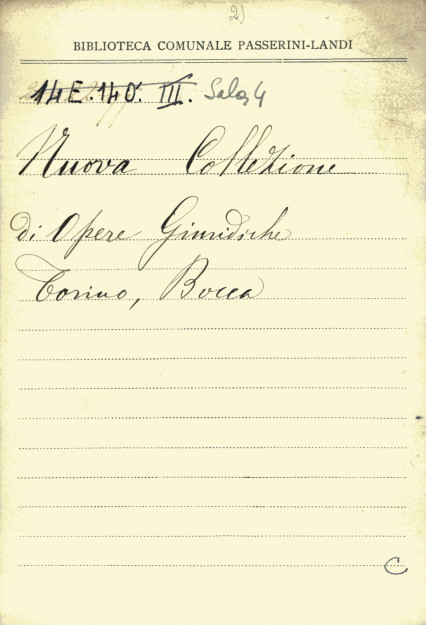 2)
BIBLIOTECA COMUNALE PASSERINI-LANDI
14E.140. III. Sala 4
Nuova Collezione
di Opere Giuridiche
Torino, Bocca
C